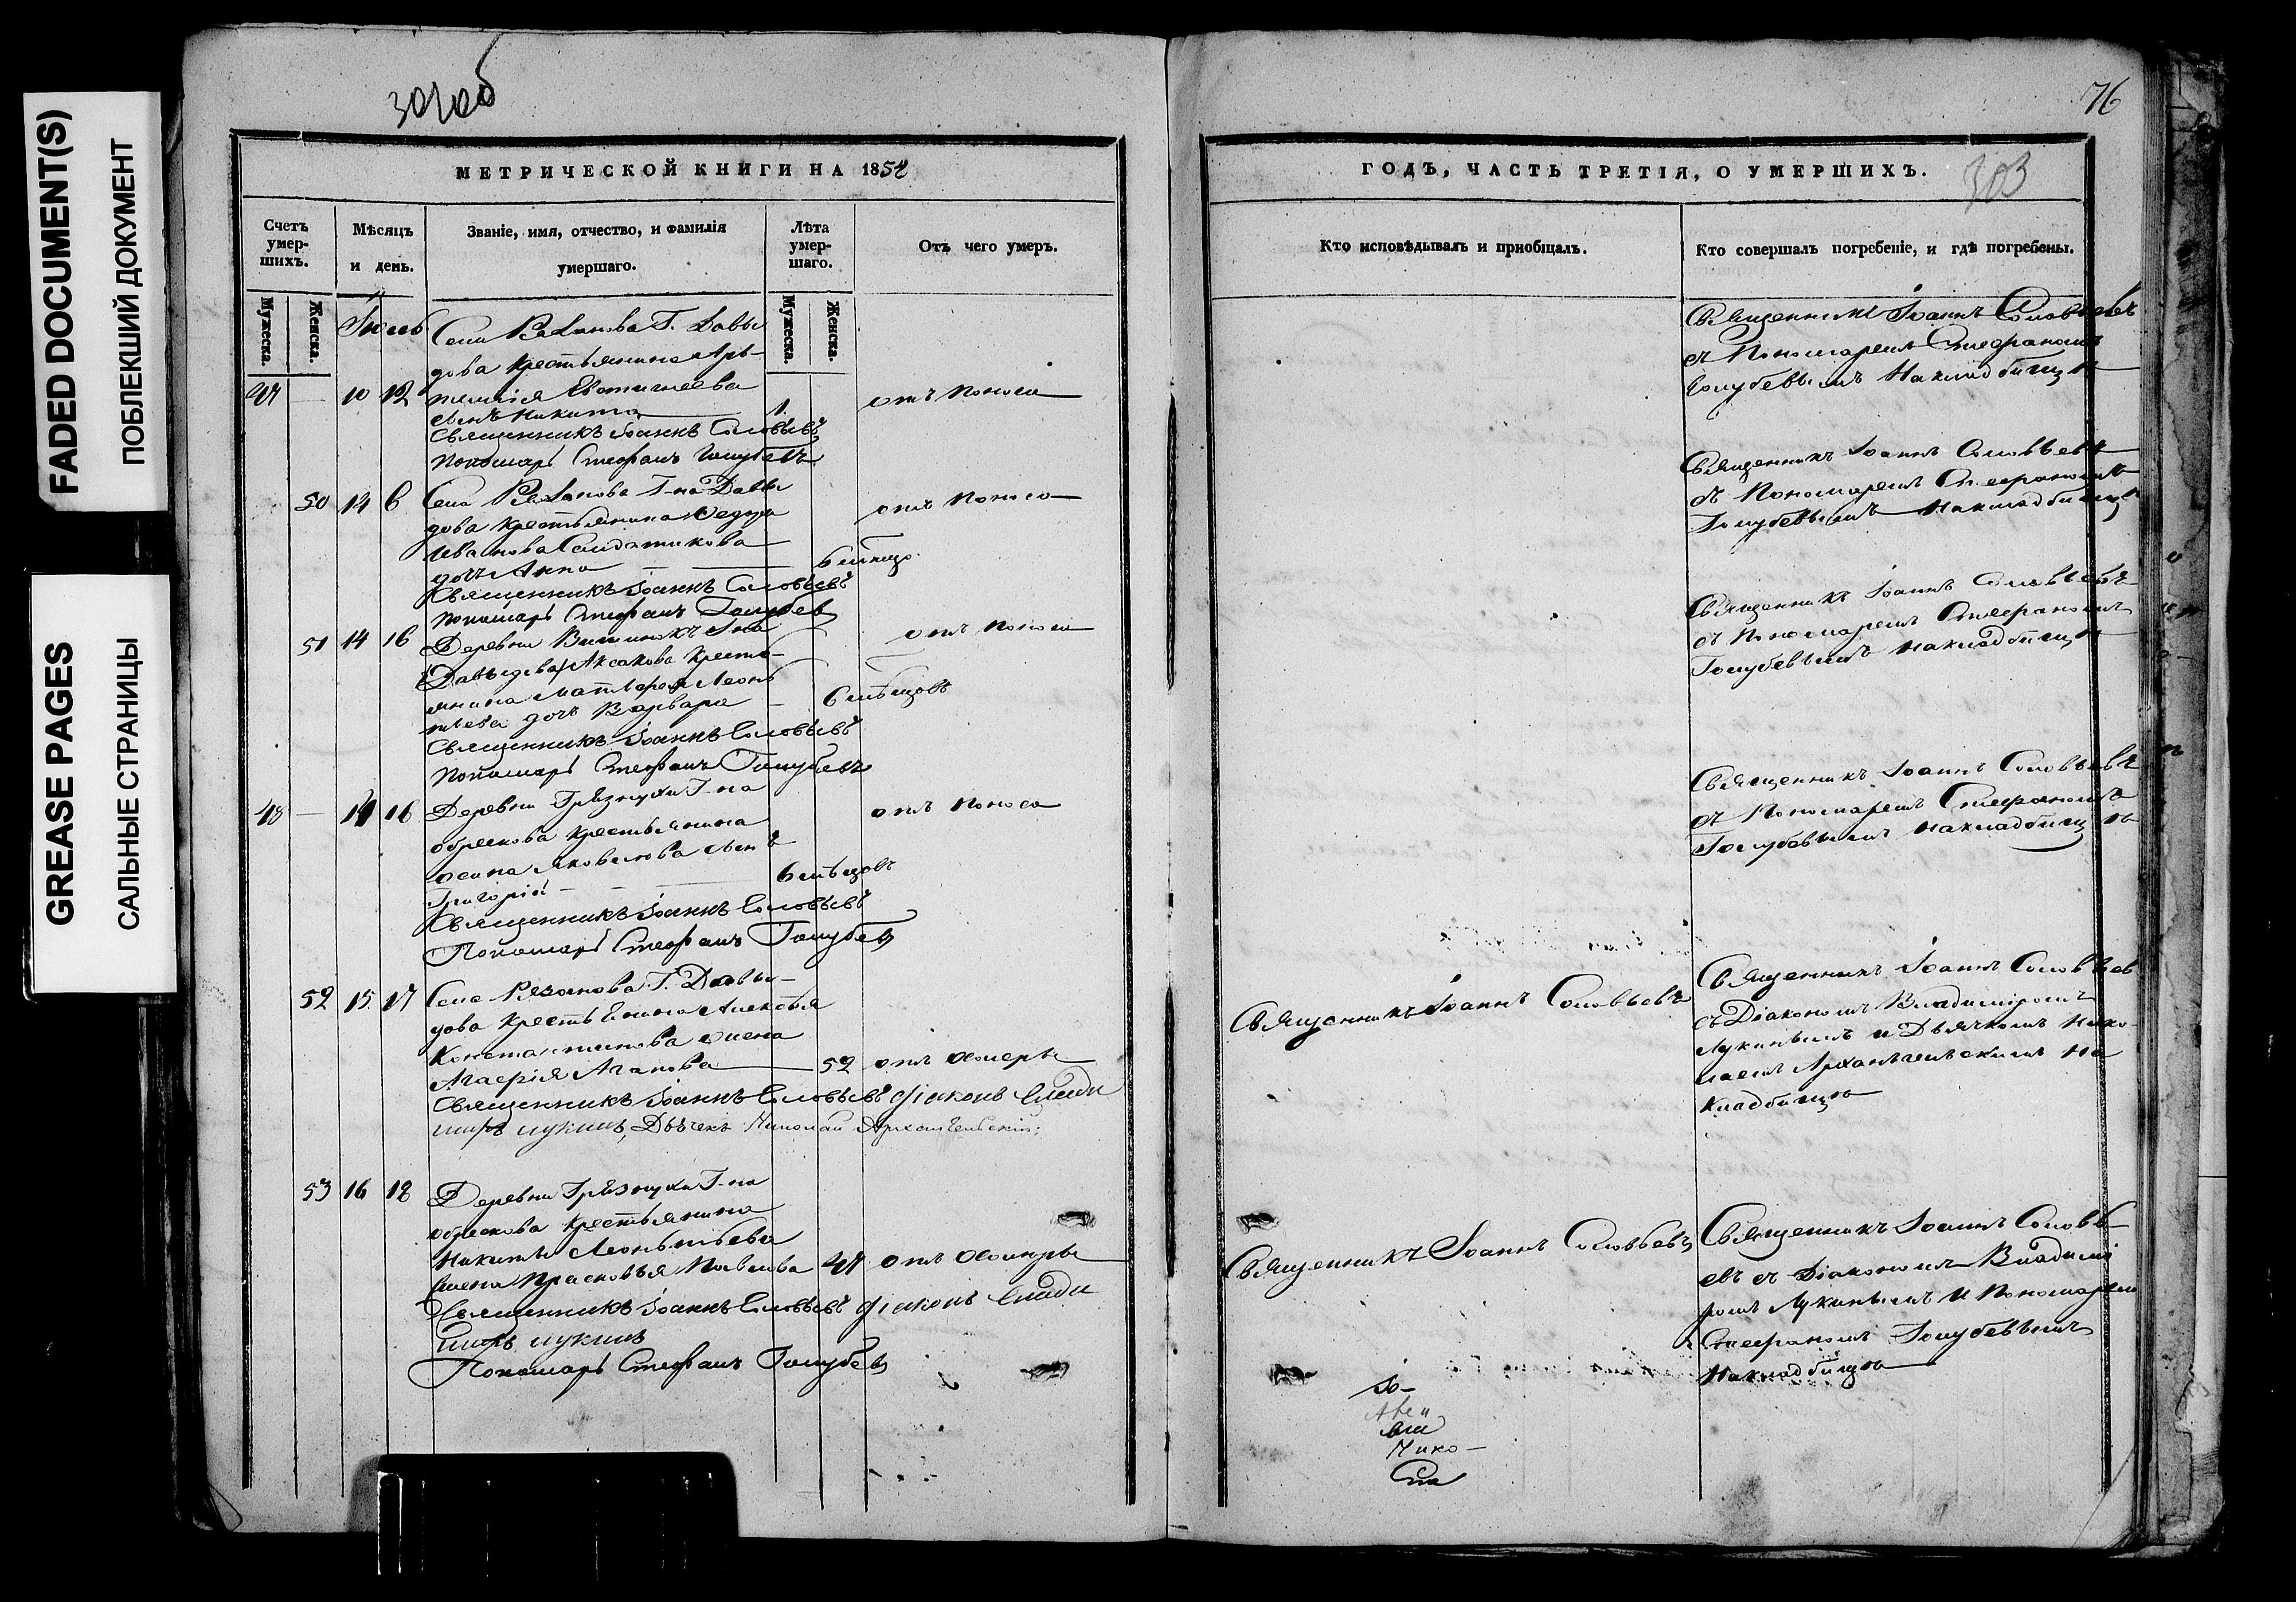 FADED DOCUMENT(S)
ПОБЛЕКШИЙ ДОКУМЕНТ
GREASE PAGES
САЛЬНЫЕ СТРАНИЦЫ
76
МЕТРИЧЕСКОЙ КНИГИ НА 1852
Счетъ умер-шихъ.
Мѣсяцъ и день.
Званіе, имя, отчество, и фамилія умершаго.
Лѣта умер-шаго.
Отъ чего умеръ.
Мужеска.
Женска.
Мужеска.
Женска.
Іюль
Села Рязанова Г. Давы
дова крестьянина
10 12
Евстигнеева
отъ поноса
сынъ Никита 1.
Священникъ Іоаннъ Соловьевъ
Пономарь Стефанъ Голубевъ
50 14 6 Села Рязанова Г-на Давы
отъ поноса
дова крестьянина Федора
Иванова Солдатикова
дочь Анна 6 мѣсяцо
Священникъ Іоаннъ Соловьевъ
Пономарь Стефанъ Голубев
51 14 16 Деревни Г-на
отъ поноса
Давыдова Аксакова кресть-
янина Матвея Леонь
тьева дочь Варвара 6 мѣсяцовъ
Священникъ Іоаннъ Соловьевъ
Пономарь Стефанъ Голубевъ
48 — 14 16 Деревни Грязнухи Г-на
отъ поноса
обрескова крестьянина
осипа Яковлева сынъ
Григорій 6 мѣсяцовъ
Священникъ Іоаннъ Соловьевъ
Пономарь Стефанъ Голубев
52 15 17 Села Рязанова Г. Давы-
дова крестьянина Алексѣя
Константинова жена
52 отъ холеры
Священникъ Іоаннъ Соловьевъ діаконъ Влади
миръ Лукинъ, Дьячекъ Николай Архангельскій;
53 16 18 Деревни Грязнухи Г-на
обрескова крестьянина
Никиты Леонтьева
жена Прасковья Павлова 47 отъ холеры
Священникъ Іоаннъ Соловьевъ діаконъ Влади
миръ Лукинъ
Пономарь Стефанъ Голубев
ГОДЪ, ЧАСТЬ ТРЕТІЯ, О УМЕРШИХЪ.
303
Кто исповѣдывалъ и приобщалъ.
Кто совершалъ погребеніе, и гдѣ погребены.
Священникъ Іоаннъ Соловьевъ
съ Пономаремъ Стефаномъ
Голубевымъ на кладбищѣ
Священникъ Іоаннъ Соловьевъ
съ Пономаремъ Стефаномъ
Голубевымъ на кладбищѣ
Священникъ Іоаннъ Соловьевъ
съ Пономаремъ Стефаномъ
Голубевымъ на кладбищѣ
Священникъ Іоаннъ Соловьевъ
съ Пономаремъ Стефаномъ
Голубевымъ на кладбищѣ
Священникъ Іоаннъ Соловьевъ
Священникъ Іоаннъ Соловьев
съ Діакономъ Владиміромъ
Лукинымъ и Дьячкомъ Нико-
лаемъ Архангельскимъ на
кладбищѣ
Священникъ Іоаннъ Соловьевъ
Священникъ Іоаннъ Соловь
евъ съ Діакономъ Владимі
ромъ Лукинымъ и Пономарем
Стефаномъ Голубевымъ
на кладбищѣ
Іо-
Нико-